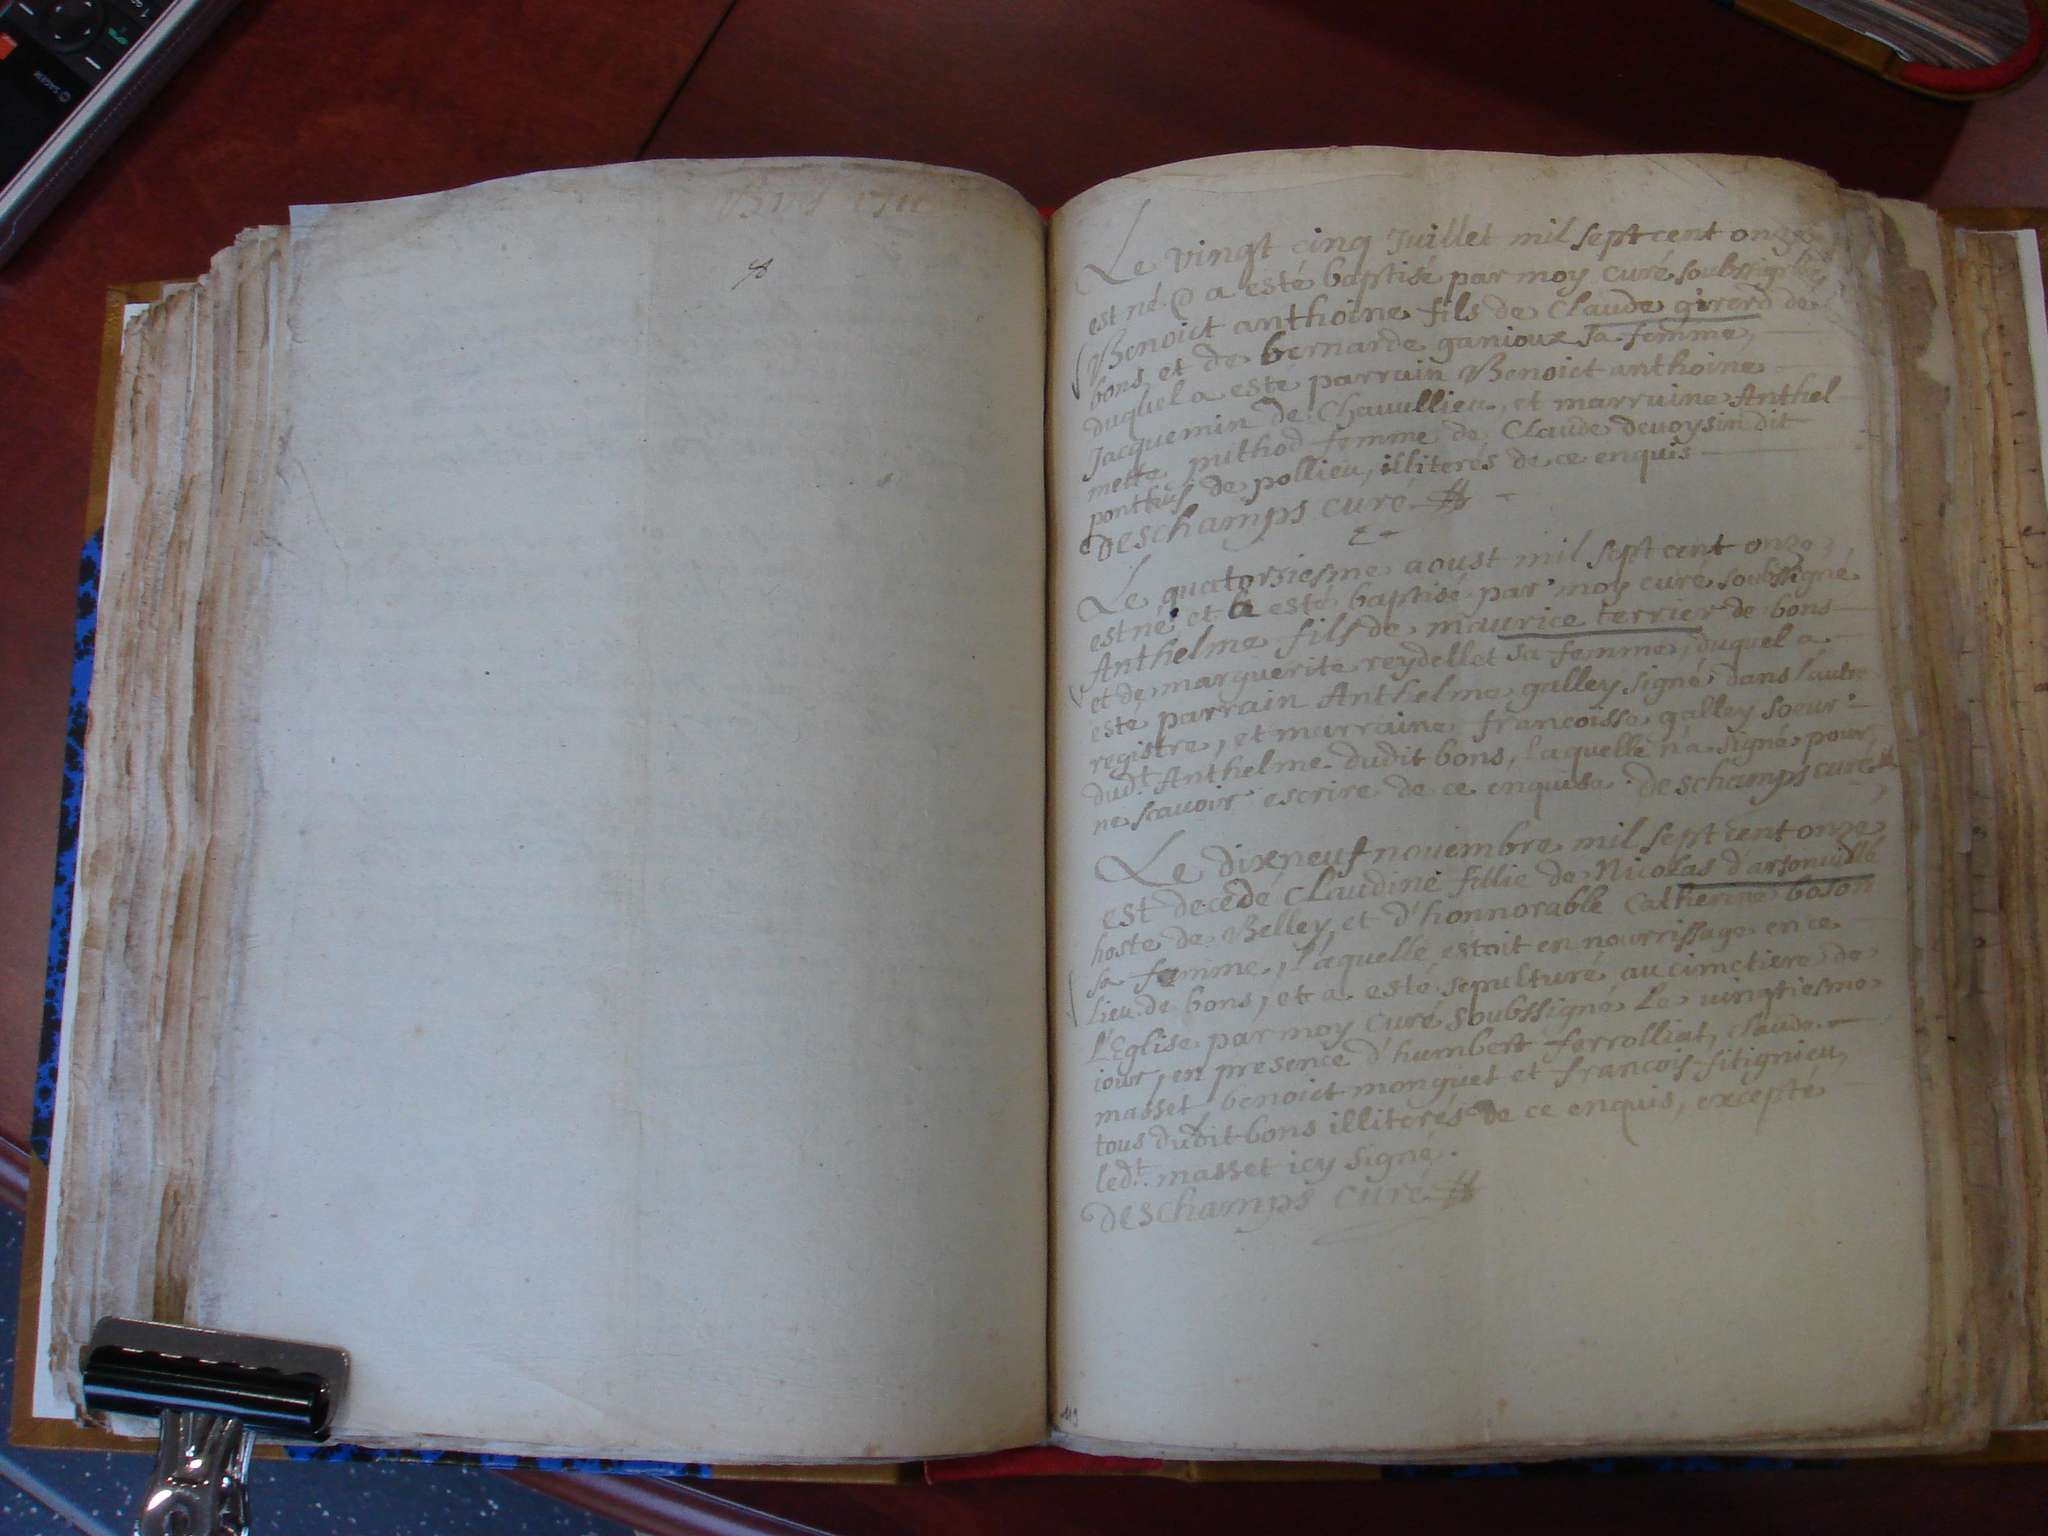 Le vingt cinq Juillet mil sept cent onze
est né & a esté baptisé par moy curé soubssigné
Benoict anthoine fils de Claude girerd de
bons, et de bernarde ganioux sa femme,
duquel a esté parrain Benoict anthoine
Jacquemin de Chavullieu, et marraine Anthel
mette puthod femme de Claude devoysin dit
ponthus de pollieu, illiterés de ce enquis
Deschamps curé
Le quatorsiesme aoust mil sept cent onze,
est né et a esté baptisé par moy curé soubssigné
Anthelme fils de maurice terrier de bons
et de marguerite reydellet sa femme, duquel a
esté parrain Anthelme galley signé dans l'autre
registre, et marraine francoisse galley soeur
dud.t Anthelme dudit bons, laquelle n'a signé pour
ne scavoir escrire de ce enquise. Deschamps curé
Le dixneuf novembre mil sept cent onze
est decedé Claudine fillie de Nicolas darsonvallé
hoste de Belley, et d'honnorable Catherine boson
sa femme, laquelle estoit en nourrissage en ce
lieu de bons, et a esté sepulturé au cimetiere de
l'Eglise par moy curé soubssigné Le vingtiesme
jour, en presence d'humbert ferrolliat, claude
masset, benoict monguet et francois fitignieu,
tous dudit bons illiterés de ce enquis, excepté
led.t masset icy signé.
Deschamps curé
119
SAGEM